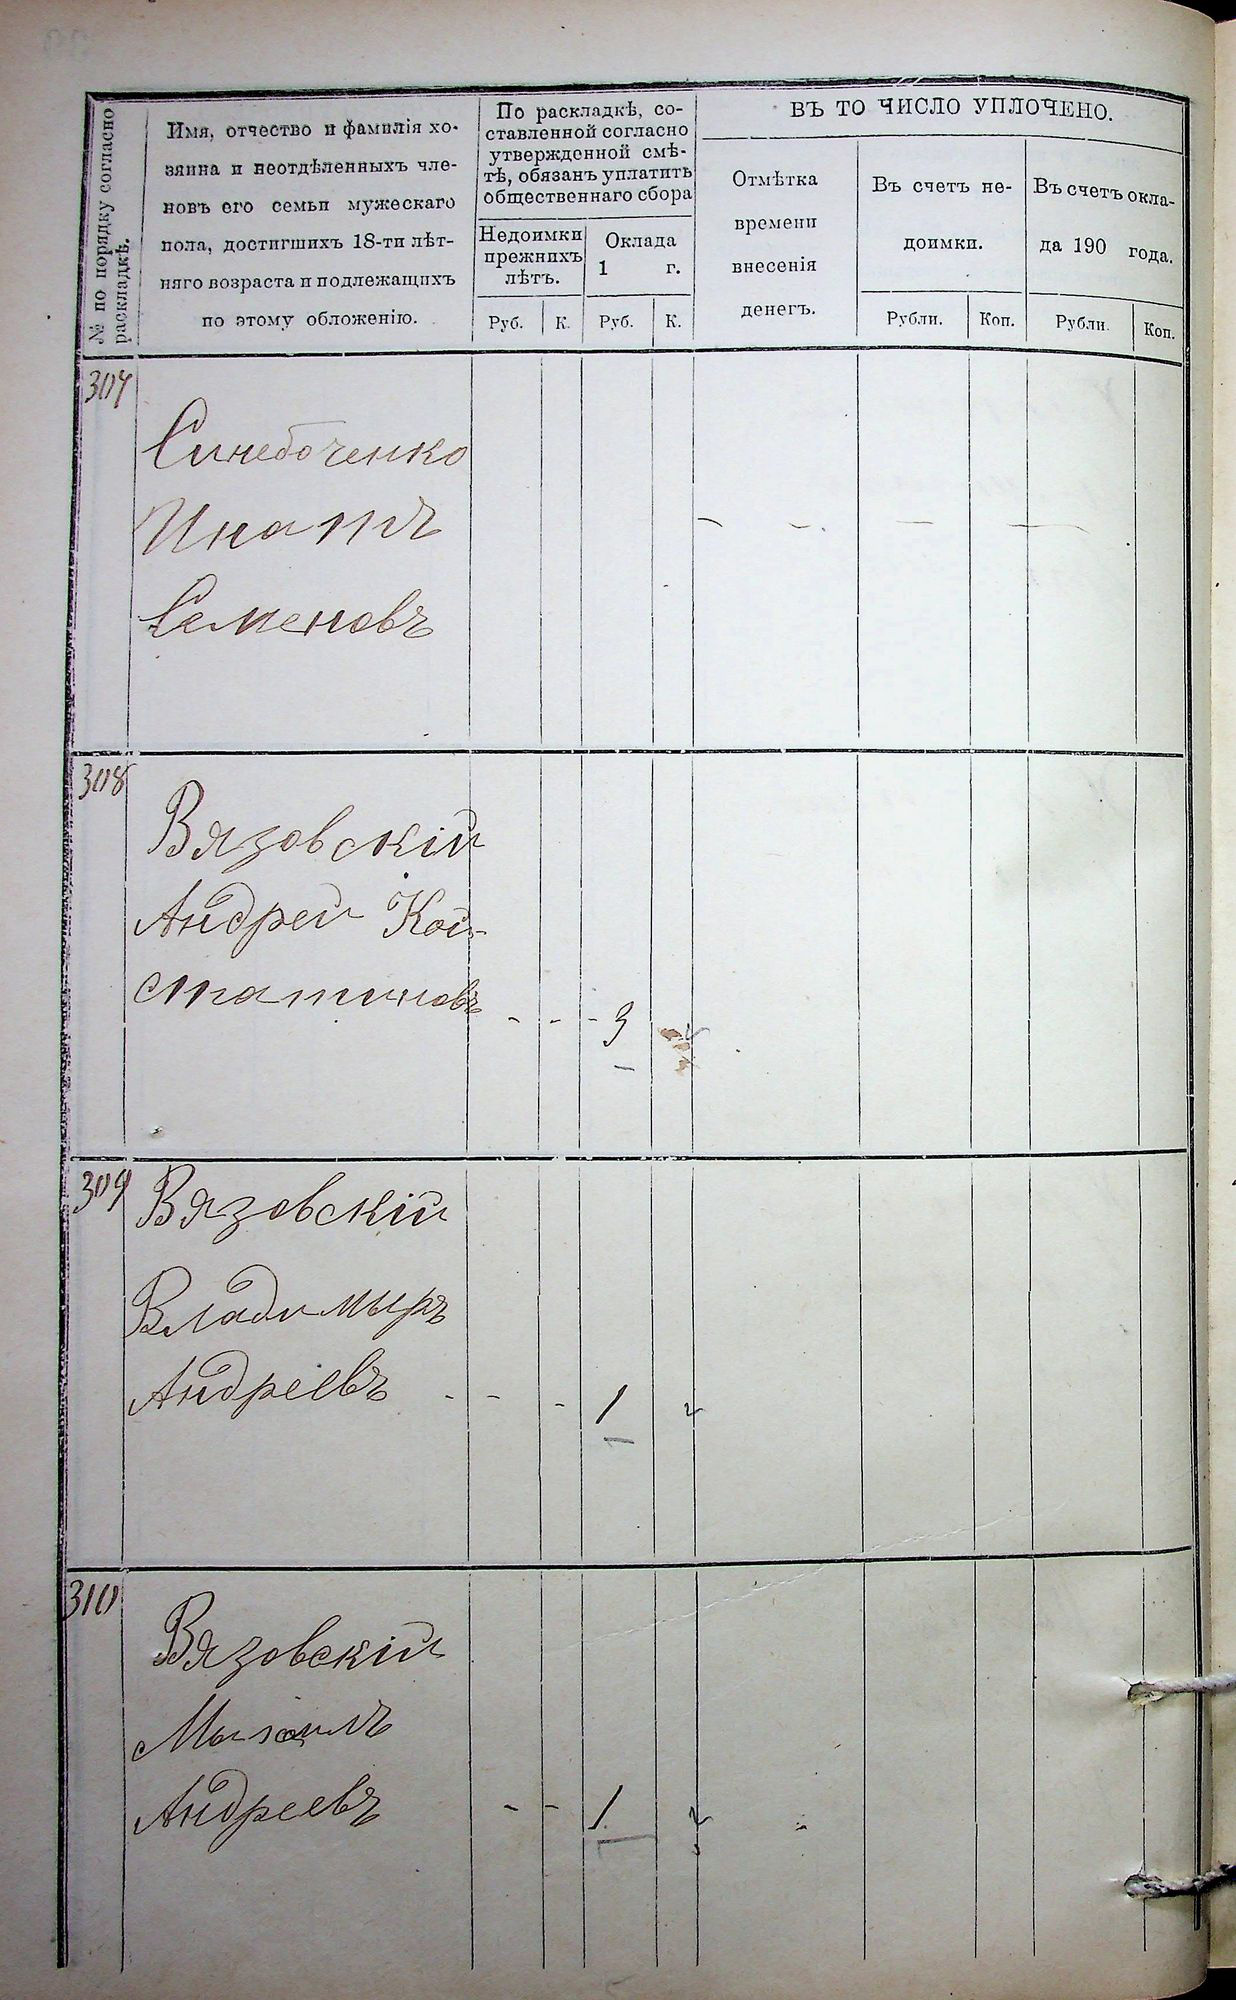 № по порядку согласно
раскладкѣ.
Имя, отчество и фамилія хо-
зяина и неотдѣленныхъ чле-
новъ его семьи мужескаго
пола, достигшихъ 18-ти лѣт-
няго возраста и подлежащихъ
по этому обложенію.
По раскладкѣ, со-
ставленной согласно
утвержденной смѣ-
тѣ, обязанъ уплатить
общественнаго сбора
Недоимки
прежнихъ
лѣтъ.
Оклада
1 г.
Руб. К. Руб. К.
ВЪ ТО ЧИСЛО УПЛОЧЕНО.
Отмѣтка
времени
внесенія
денегъ.
Въ счетъ не-
доимки.
Рубли. Коп.
Въ счетъ окла-
да 190 года.
Рубли. Коп.
307
Синебоченко
Семеновъ
308
Вязовскій
Андрей Кон-
статиновъ
3
309
Вязовскій
Владимыръ
Андреевъ
1
310
Вязовскій
Мыхаилъ
Андреевъ
1